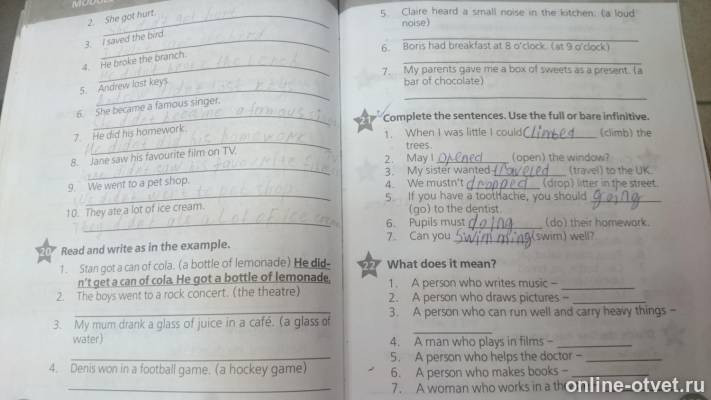 MODULE
2. She got hurt.
3. I saved the bird.
4. He broke the branch.
5. Andrew lost keys.
6. She became a famous singer.
7. He did his homework.
8. Jane saw his favourite film on TV.
9. We went to a pet shop.
10. They ate a lot of ice cream.
20 Read and write as in the example.
1. Stan got a can of cola. (a bottle of lemonade) He did-
n't get a can of cola. He got a bottle of lemonade.
2. The boys went to a rock concert. (the theatre)
3. My mum drank a glass of juice in a café. (a glass of
water)
4. Denis won in a football game. (a hockey game)
5. Claire heard a small noise in the kitchen. (a loud
noise)
6. Boris had breakfast at 8 o'clock. (at 9 o'clock)
7. My parents gave me a box of sweets as a present. (a
bar of chocolate)
21 Complete the sentences. Use the full or bare infinitive.
1. When I was little I could Climbed (climb) the
trees.
2. May I opened (open) the window?
3. My sister wanted traveled (travel) to the UK.
4. We mustn't dropped (drop) litter in the street.
5. If you have a toothache, you should going
(go) to the dentist.
6. Pupils must doing (do) their homework.
7. Can you swimming (swim) well?
22 What does it mean?
1. A person who writes music –
2. A person who draws pictures –
3. A person who can run well and carry heavy things –
4. A man who plays in films –
5. A person who helps the doctor –
6. A person who makes books –
7. A woman who works in a
online-otvet.ru